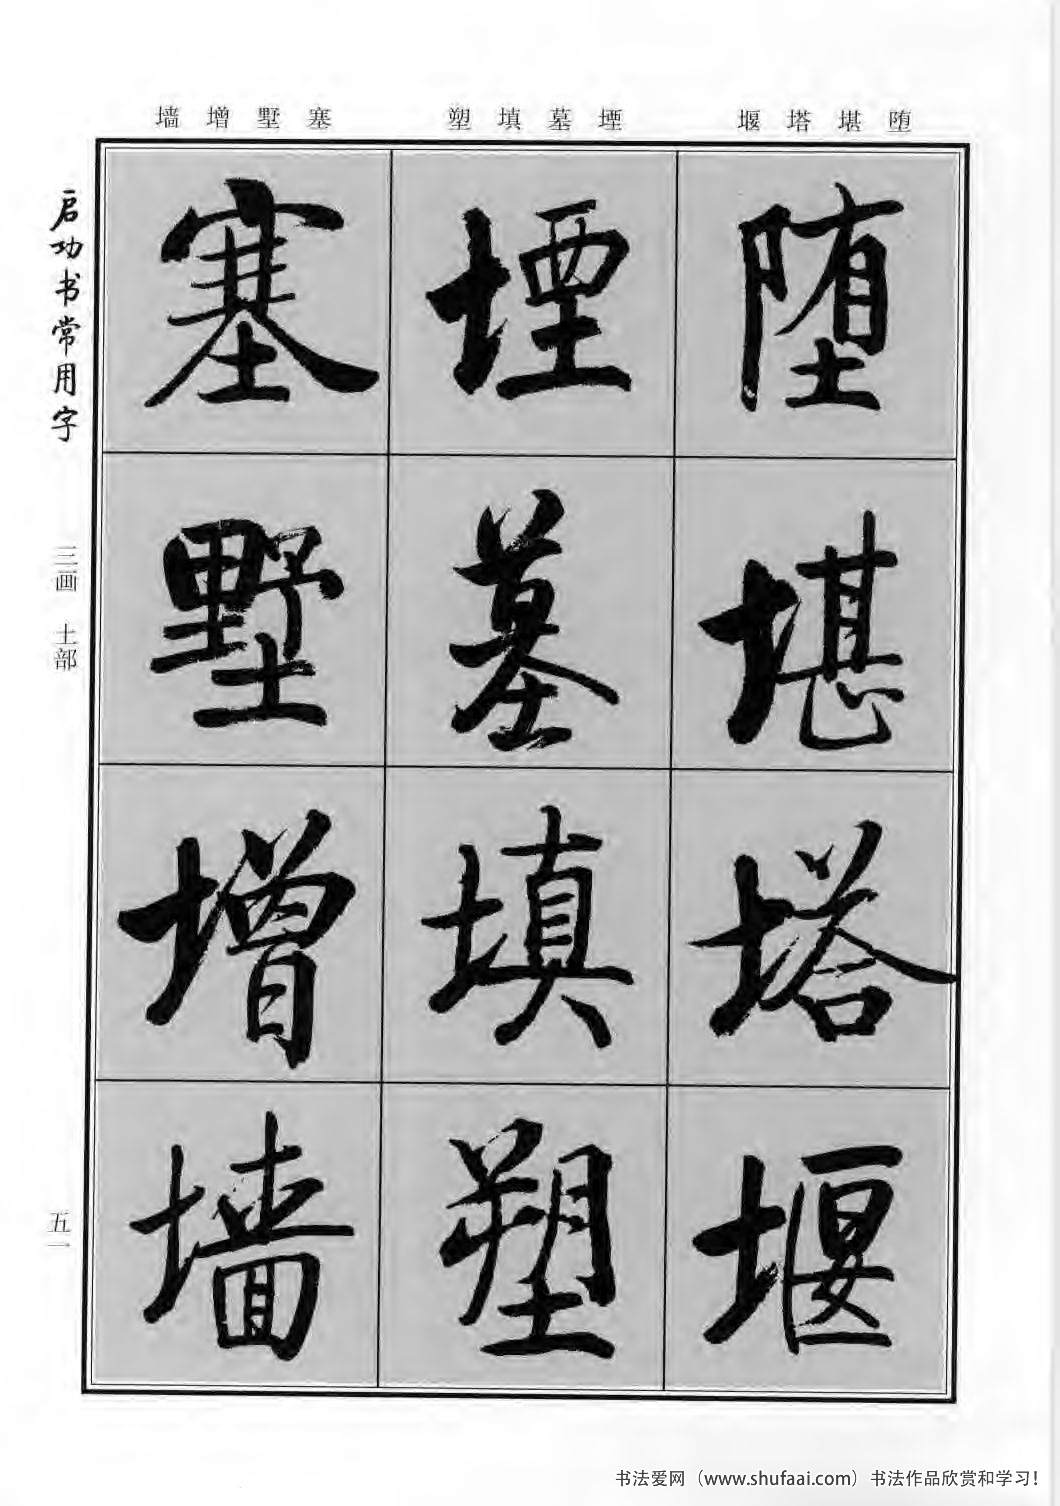 堕堪塔堰
堙墓填塑
塞墅增墙
堕堪塔堰
堙墓填塑
塞墅增墙
启功书常用字
三画 土部
五一
书法爱网（www.shufaai.com）书法作品欣赏和学习！